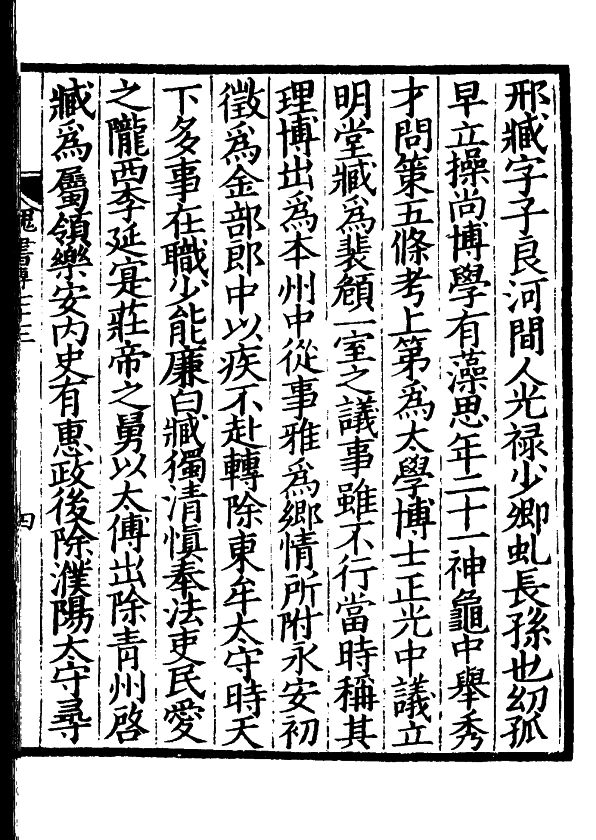 邢臧字子良河間人光禄少卿虬長孫也幼孤
早立操尚博學有藻思年二十一神龜中舉秀
才問策五條考上第爲太學博士正光中議立
明堂臧爲裴頠一室之議事雖不行當時稱其
理博出爲本州中從事雅爲鄉情所附永安初
徵爲金部郎中以疾不赴轉除東牟太守時天
下多事在職少能廉白臧獨清慎奉法吏民愛
之隴西李延寔莊帝之舅以太傅出除青州啓
臧爲屬領樂安内史有惠政後除濮陽太守尋
四